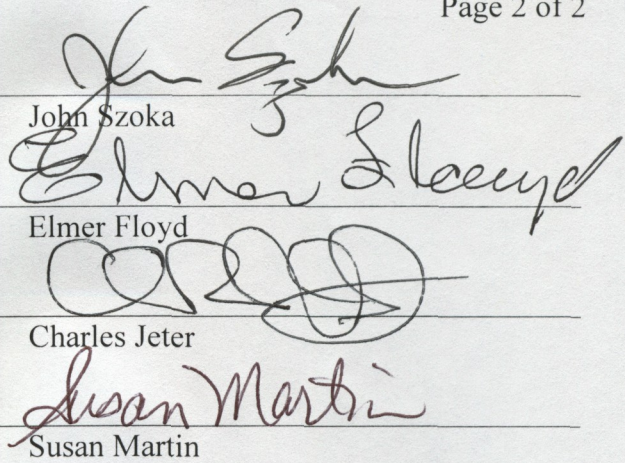 Page 2 of 2
John Szoka
John Szoka
Elmer Floyd
Elmer Floyd
Charles Jeter
Susan Martin
Susan Martin